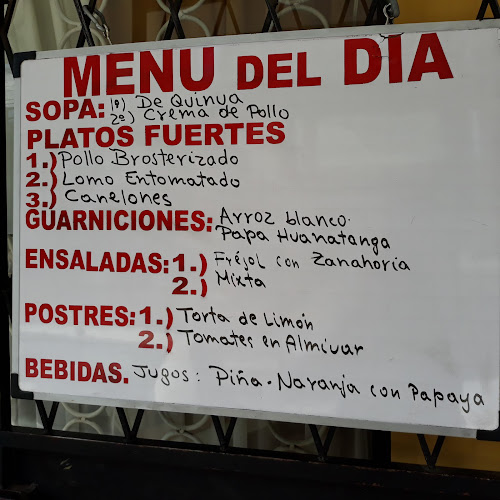 MENU DEL DIA
SOPA: 1º) De Quinua
2º) Crema de Pollo
PLATOS FUERTES
1.) Pollo Brosterizado
2.) Lomo Entomatado
3.) Canelones
GUARNICIONES: Arroz blanco.
Papa Huanatanga
ENSALADAS: 1.) Fréjol con Zanahoria
2.) Mixta
POSTRES: 1.) Torta de Limón
2.) Tomates en Almivar
BEBIDAS. Jugos: Piña - Naranja con Papaya